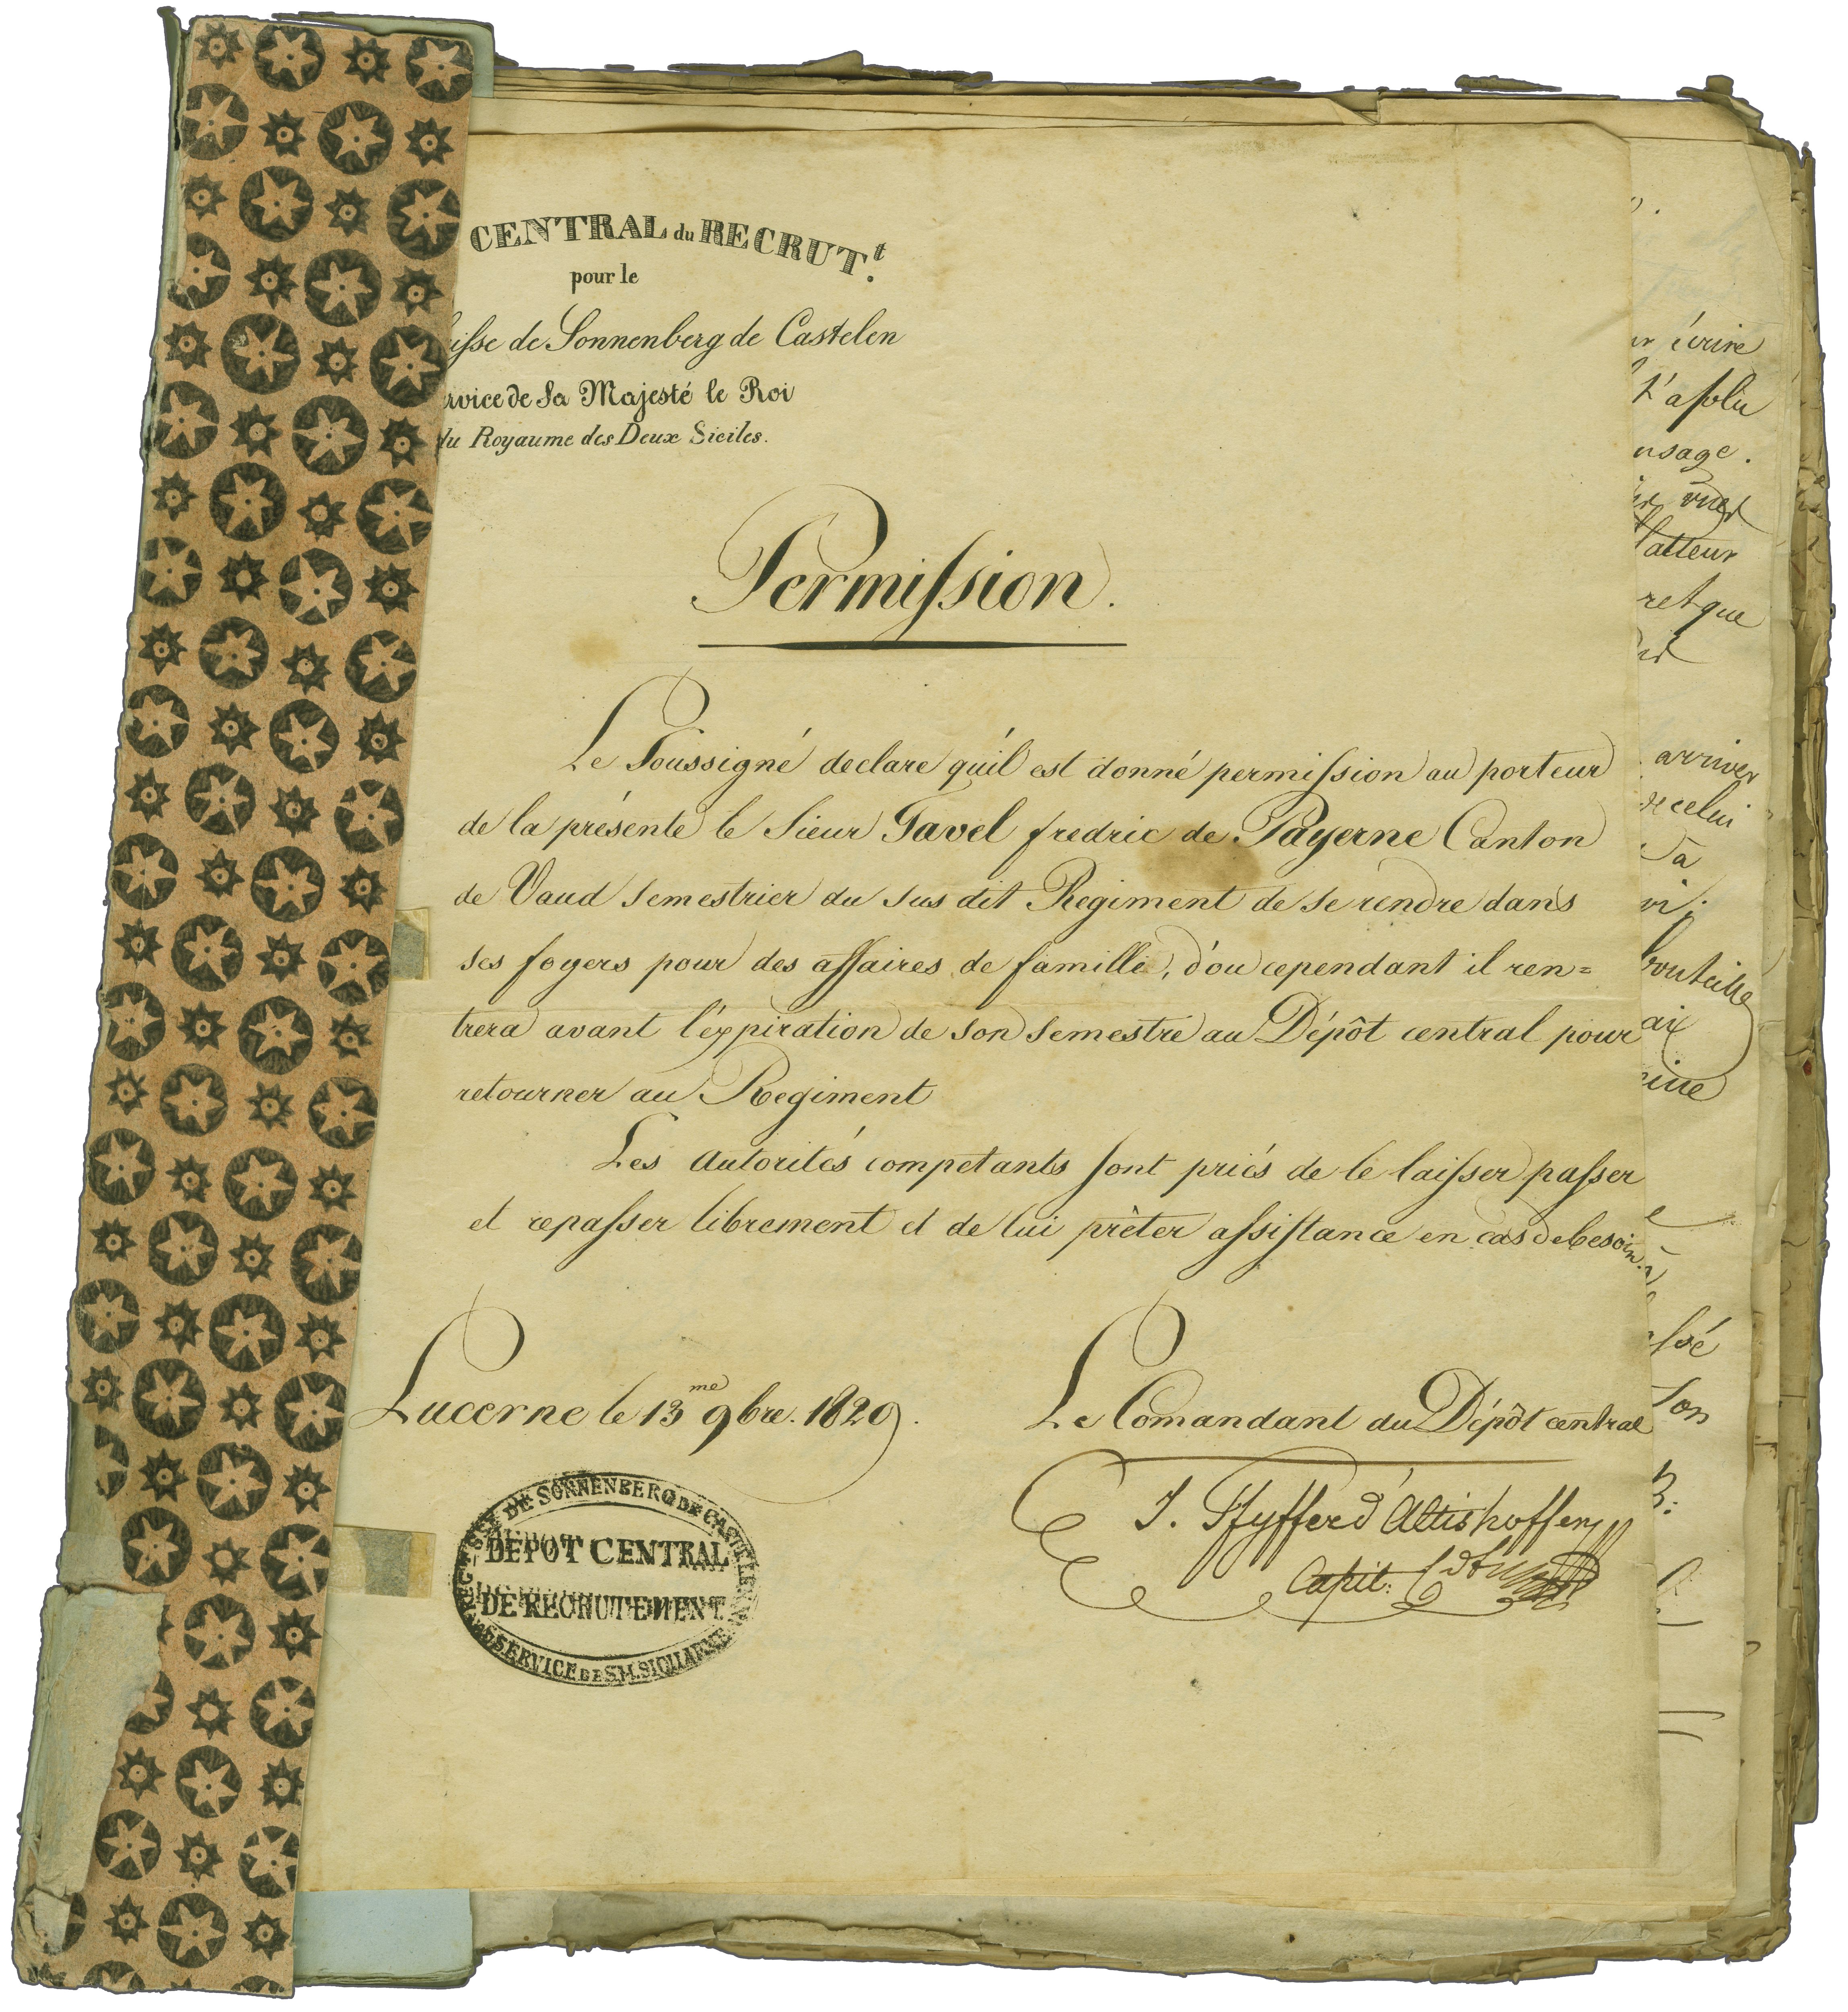 CENTRAL du RECRUT.t
pour le
isse de Sonnenberg de Castelen
rvice de Sa Majesté le Roi
du Royaume des Deux Siciles.
Permission.
Le Soussigné declare qu'il est donné permission au porteur
de la présente le Sieur Tavel fredric de Payerne Canton
de Vaud semestrier du sus dit Regiment de se rendre dans
ses foyers pour des affaires de famille, d'ou cependant il ren=
trera avant l'expiration de son semestre au Dépôt central pour
retourner au Regiment
Les autorités competants sont priés de le laisser passer
et repasser librement et de lui prêter assistance en cas de besoin.
Lucerne le 13me 9bre. 1829.
Le Comandant du Dépôt central
J. Pfyffer d'Altishoffen
Capit:
DE SONNENBERG DE CASTELEN
DEPOT CENTRAL
DE RECRUTEMENT
SERVICE DE S.M. SICILIENNE
écrire
usage.
vues
flatteur
ret que
arriver
de celui
à
bouteille